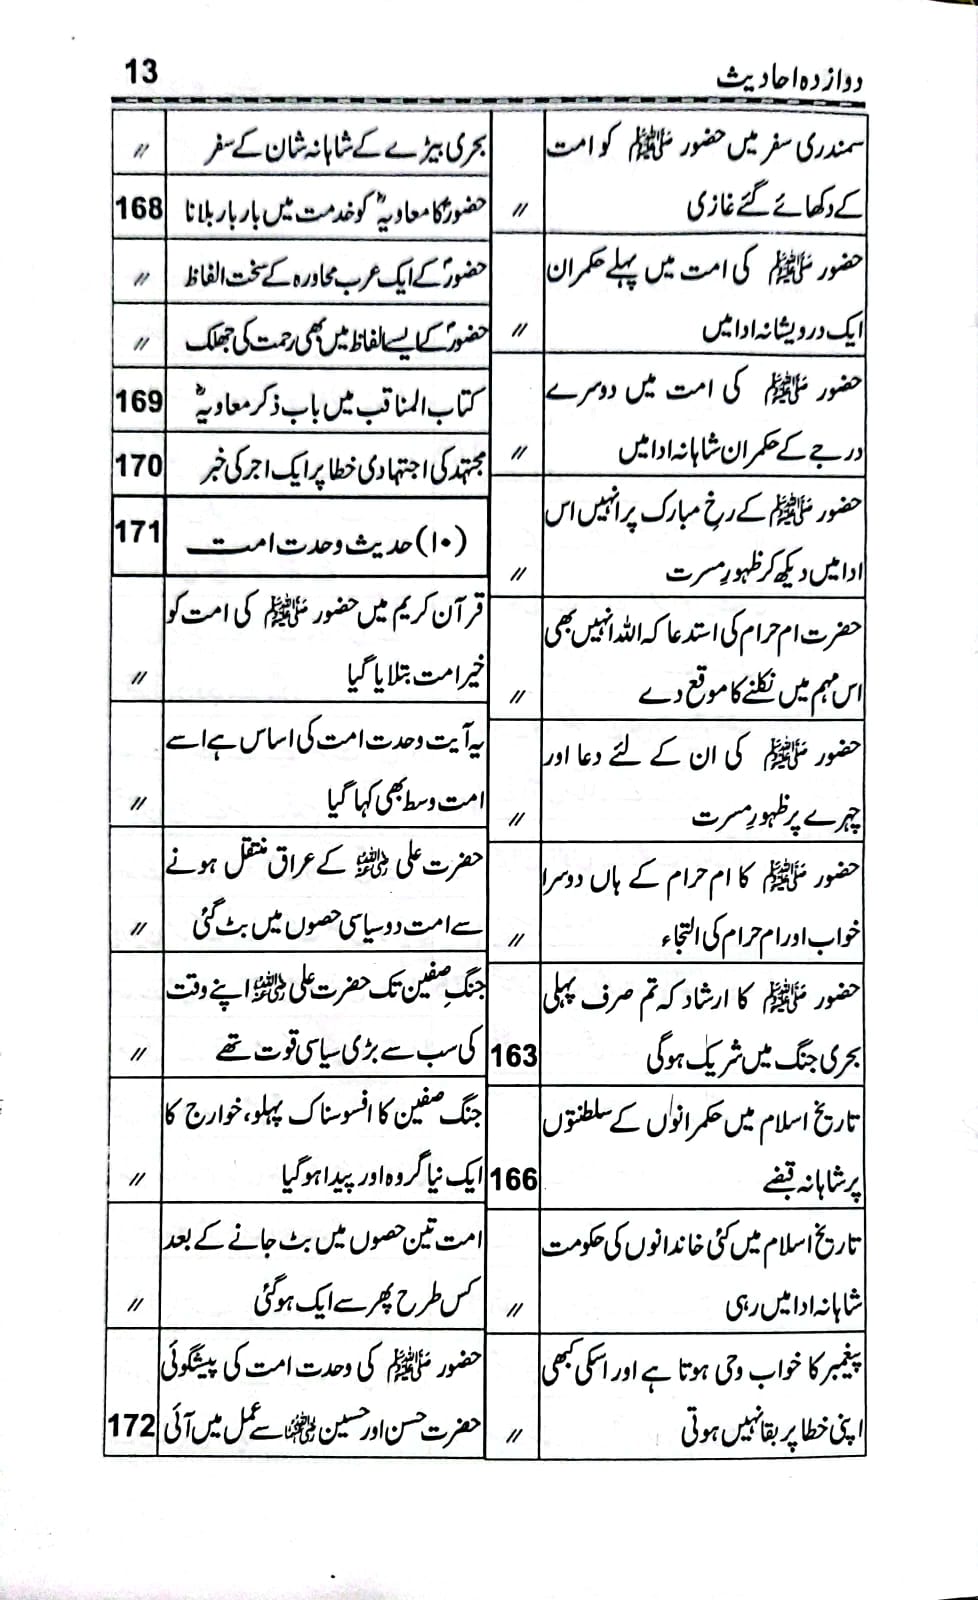 دوازدہ احادیث
13
سمندری سفر میں حضور ﷺ کو امت
کے دکھائے گئے غازی
〃
حضور ﷺ کی امت میں پہلے حکمران
ایک درویشانہ ادا میں
〃
حضور ﷺ کی امت میں دوسرے
درجے کے حکمران شاہانہ ادا میں
〃
حضور ﷺ کے رخِ مبارک پر انہیں اس
ادا میں دیکھ کر ظہورِ مسرت
〃
حضرت ام حرام کی استدعا کہ اللہ انہیں بھی
اس مہم میں نکلنے کا موقع دے
〃
حضور ﷺ کی ان کے لئے دعا اور
چہرے پر ظہورِ مسرت
〃
حضور ﷺ کا ام حرام کے ہاں دوسرا
خواب اور ام حرام کی التجاء
〃
حضور ﷺ کا ارشاد کہ تم صرف پہلی
بحری جنگ میں شریک ہوگی
163
تاریخ اسلام میں حکمرانوں کے سلطنتوں
پر شاہانہ قبضے
166
تاریخ اسلام میں کئی خاندانوں کی حکومت
شاہانہ ادا میں رہی
〃
پیغمبر کا خواب وحی ہوتا ہے اور اسکی کبھی
اپنی خطا پر بقا نہیں ہوتی
〃
بحری بیڑے کے شاہانہ شان کے سفر
〃
حضورؐ کا معاویہؓ کو خدمت میں بار بار بلانا
168
حضورؐ کے ایک عرب محاورہ کے سخت الفاظ
〃
حضورؐ کے ایسے الفاظ میں بھی رحمت کی جھلک
〃
کتاب المناقب میں باب ذکر معاویہؓ
169
مجتہد کی اجتہادی خطا پر ایک اجر کی خبر
170
(۱۰) حدیث وحدت امت
171
قرآن کریم میں حضور ﷺ کی امت کو
خیر امت بتلایا گیا
〃
یہ آیت وحدت امت کی اساس ہے اسے
امت وسط بھی کہا گیا
〃
حضرت علی رضی اللہ عنہ کے عراق منتقل ہونے
سے امت دو سیاسی حصوں میں بٹ گئی
〃
جنگِ صفین تک حضرت علی رضی اللہ عنہ اپنے وقت
کی سب سے بڑی سیاسی قوت تھے
〃
جنگ صفین کا افسوسناک پہلو، خوارج کا
ایک نیا گروہ اور پیدا ہو گیا
〃
امت تین حصوں میں بٹ جانے کے بعد
کس طرح پھر سے ایک ہو گئی
〃
حضور ﷺ کی وحدت امت کی پیشگوئی
حضرت حسن اور حسین رضی اللہ عنہما سے عمل میں آئی
172